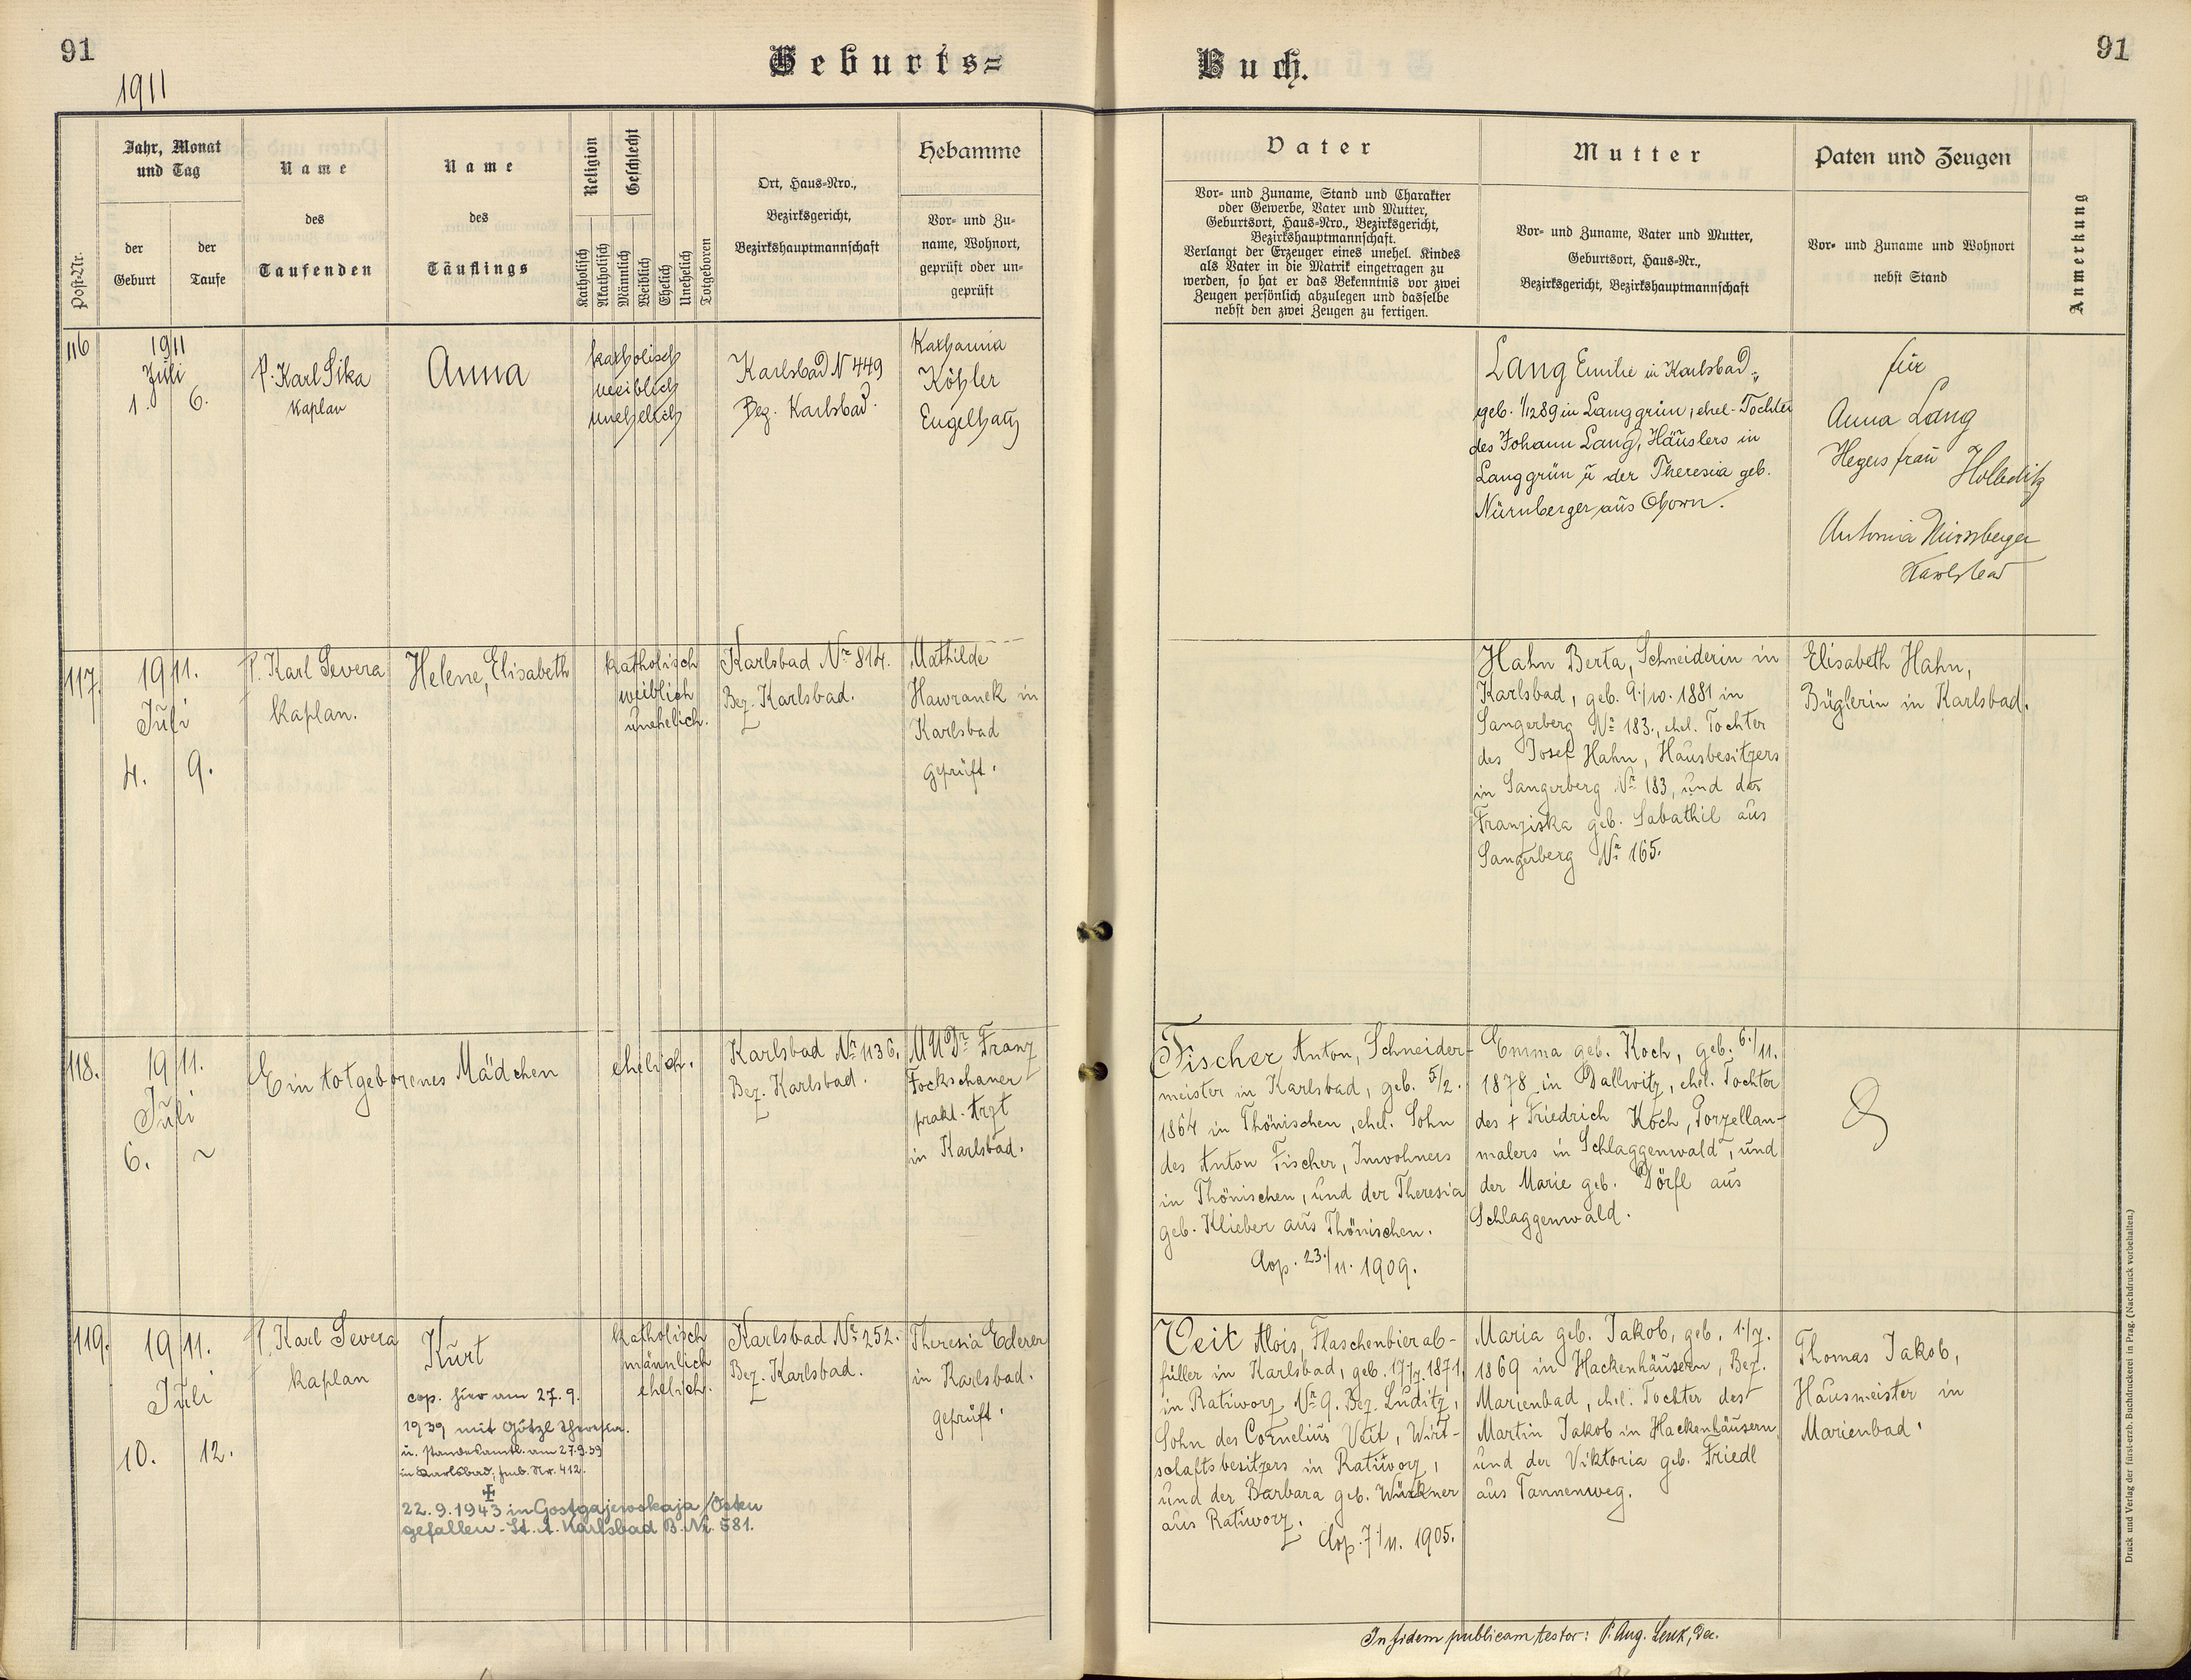 91
1911
Geburts=
Buch.
91
Post-Nr.
Jahr, Monat
und Tag
der
Geburt
der
Taufe
Name
des
Taufenden
Name
des
Täuflings
Religion
Geschlecht
Katholisch
Akatholisch
Männlich
Weiblich
Ehelich
Unehelich
Totgeboren
Ort, Haus-Nro.,
Bezirksgericht,
Bezirkshauptmannschaft
Hebamme
Vor- und Zu-
name, Wohnort,
geprüft oder un-
geprüft
Vater
Vor- und Zuname, Stand und Charakter
oder Gewerbe, Vater und Mutter,
Geburtsort, Haus-Nro., Bezirksgericht,
Bezirkshauptmannschaft.
Verlangt der Erzeuger eines unehel. Kindes
als Vater in die Matrik eingetragen zu
werden, so hat er das Bekenntnis vor zwei
Zeugen persönlich abzulegen und dasselbe
nebst den zwei Zeugen zu fertigen.
Mutter
Vor- und Zuname, Vater und Mutter,
Geburtsort, Haus-Nr.,
Bezirksgericht, Bezirkshauptmannschaft
Paten und Zeugen
Vor- und Zuname und Wohnort
nebst Stand
Anmerkung
116
1911
Juli
1. 6.
P. Karl Sika
Kaplan
Anna
katholisch
weiblich
unehelich
Karlsbad N 449
Bez. Karlsbad.
Katharina
Köhler
Engelhaus
Lang Emilie in Karlsbad,
geb. 1/12 89 in Langgrün, ehel. Tochter
des Johann Lang, Häuslers in
Langgrün u der Theresia geb.
Nürnberger aus
für
Anna Lang
Hegersfrau
Antonia Nürnberger
Karlsbad
117.
1911.
Juli
4. 9.
P. Karl Severa
Kaplan.
Helene, Elisabeth
katholisch
weiblich
unehelich.
Karlsbad Nr 814.
Bez. Karlsbad.
Mathilde
Hawranek in
Karlsbad
geprüft.
Hahn Berta, Schneiderin in
Karlsbad, geb. 9./10. 1881 in
Sangerberg Nr 183., ehel. Tochter
des Josef Hahn, Hausbesitzers
in Sangerberg Nr 183, und der
Franziska geb. Sabathil aus
Sangerberg Nr 165.
Elisabeth Hahn,
Büglerin in Karlsbad.
118.
1911.
Juli
6. ~
Ein totgeborenes Mädchen
ehelich.
Karlsbad Nr 1136.
Bez. Karlsbad.
MUDr Franz
Fockschaner
prakt. Arzt
in Karlsbad.
Fischer Anton, Schneider-
meister in Karlsbad, geb. 5/2.
1864 in Thönischen, ehel. Sohn
des Anton Fischer, Inwohners
in Thönischen, und der Theresia
geb. Klieber aus Thönischen.
Cop. 23./11. 1909.
Emma geb. Koch, geb. 6./11.
1878 in Dallwitz, ehel. Tochter
des † Friedrich Koch, Porzellan-
malers in Schlaggenwald, und
der Marie geb. Dörfl aus
Schlaggenwald.
119.
1911.
Juli
10. 12.
P. Karl Severa
Kaplan
Kurt
cop. hier am 27. 9.
1939 mit Götzl Theresia.
u. standesamtl. am 27.9.39
in Karlsbad, Fmb. Nr. 412.
✠
22. 9. 1943 in Gostgajewskaja / Osten
gefallen - St. A. Karlsbad B. Nr. 581.
katholisch
männlich
ehelich.
Karlsbad Nr 252.
Bez. Karlsbad.
Theresia Ederer
in Karlsbad.
geprüft.
Veit Alois, Flaschenbierab-
füller in Karlsbad, geb. 17/7. 1871.
in Ratiworz Nr 9. Bez. Luditz,
Sohn des Cornelius Veit, Wirt-
schaftsbesitzers in Ratiworz,
und der Barbara geb. Würkner
aus Ratiworz.
Cop. 7./11. 1905.
Maria geb. Jakob, geb. 1./7.
1869 in Hackenhäusern, Bez.
Marienbad, ehel. Tochter des
Martin Jakob in Hackenhäusern,
und der Viktoria geb. Friedl
aus Tannenweg.
Thomas Jakob,
Hausmeister in
Marienbad.
In fidem publicam testor: P. Aug. Lenk, Dec.
Druck und Verlag der fürst-erzb. Buchdruckerei in Prag. (Nachdruck vorbehalten.)